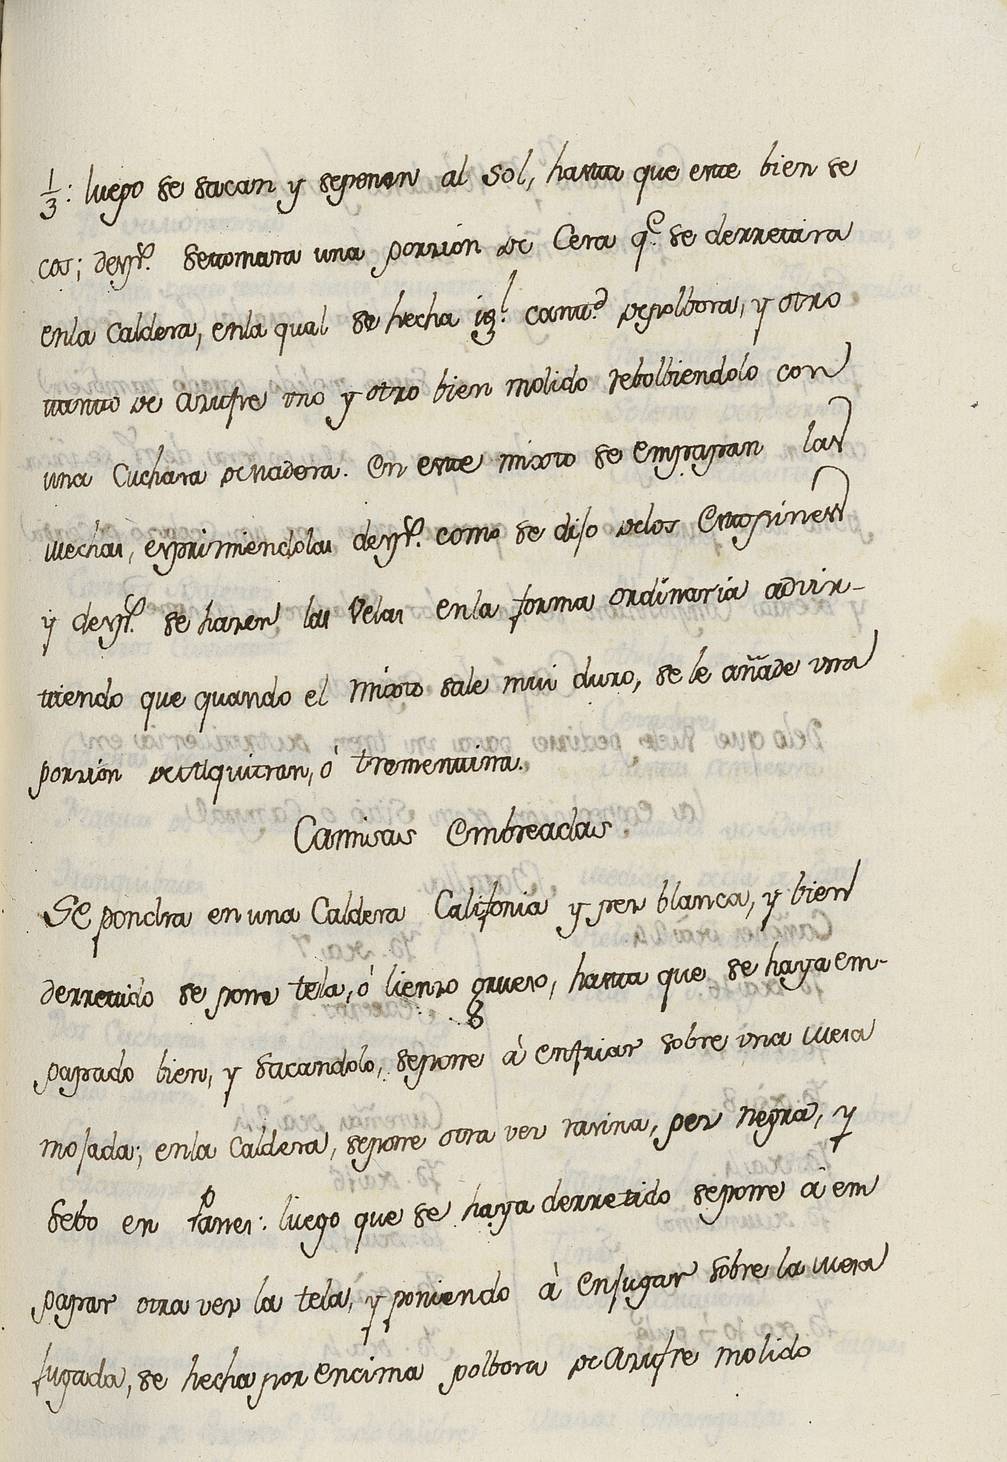 1/3: luego se sacan y seponen al Sol, hasta que este bien se
cos; desp.s setomara una porzion de Cera q.e se derretira
enla Caldera, enla qual se hecha ig.l cant.d depolbora, y otro
tanto de azufre uno y otro bien molido rebolbiendolo con
una Cuchara de madera. En este mixto se empapan las
mechas, exprimiendolas desp.s como se dijo delos Estopines
y desp.s se hazen las Velas enla forma ordinaria advir-
tiendo que quando el mixto sale mui duro, se le añade una
porzion de Alquitran, ó trementina.
Camisas Embreadas
Se pondra en una Caldera Califonia y pez blanca, y bien
derretido se pone tela, ó lienzo grueso, hasta que se haya em-
papado bien, y sacandolo, sepone à enfriar sobre una mesa
mojada; enla Caldera, sepone otra vez razina, pez negra, y
Sebo en p.r tanes: luego que se haya derretido sepone à em
papar otra vez la tela, y poniendo à enjugar sobre la mesa
jugada, se hecha por encima polbora de Azufre molido